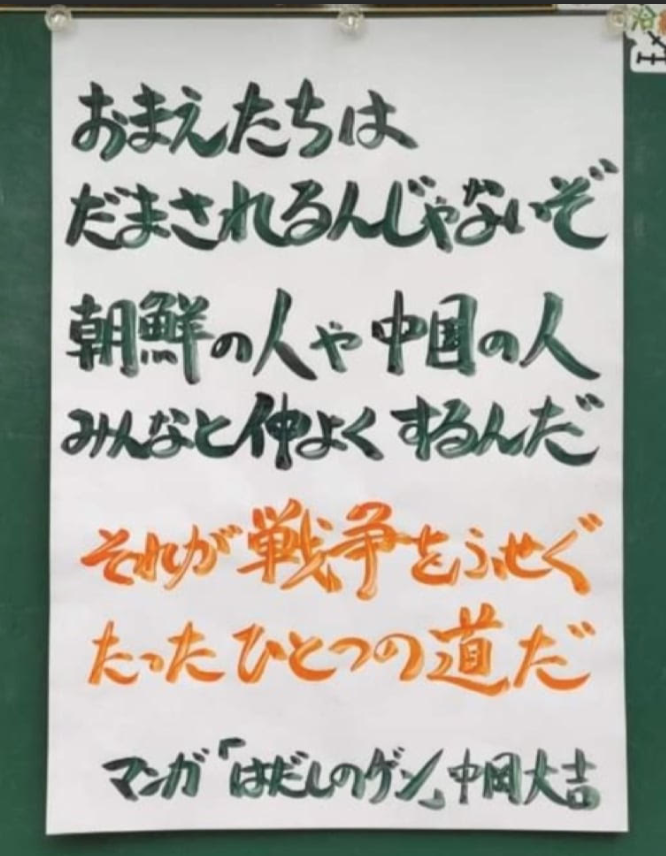 おまえたちは
だまされるんじゃないぞ
朝鮮の人や中国の人
みんなと仲よくするんだ
それが戦争をふせぐ
たったひとつの道だ
マンガ「はだしのゲン」中岡大吉